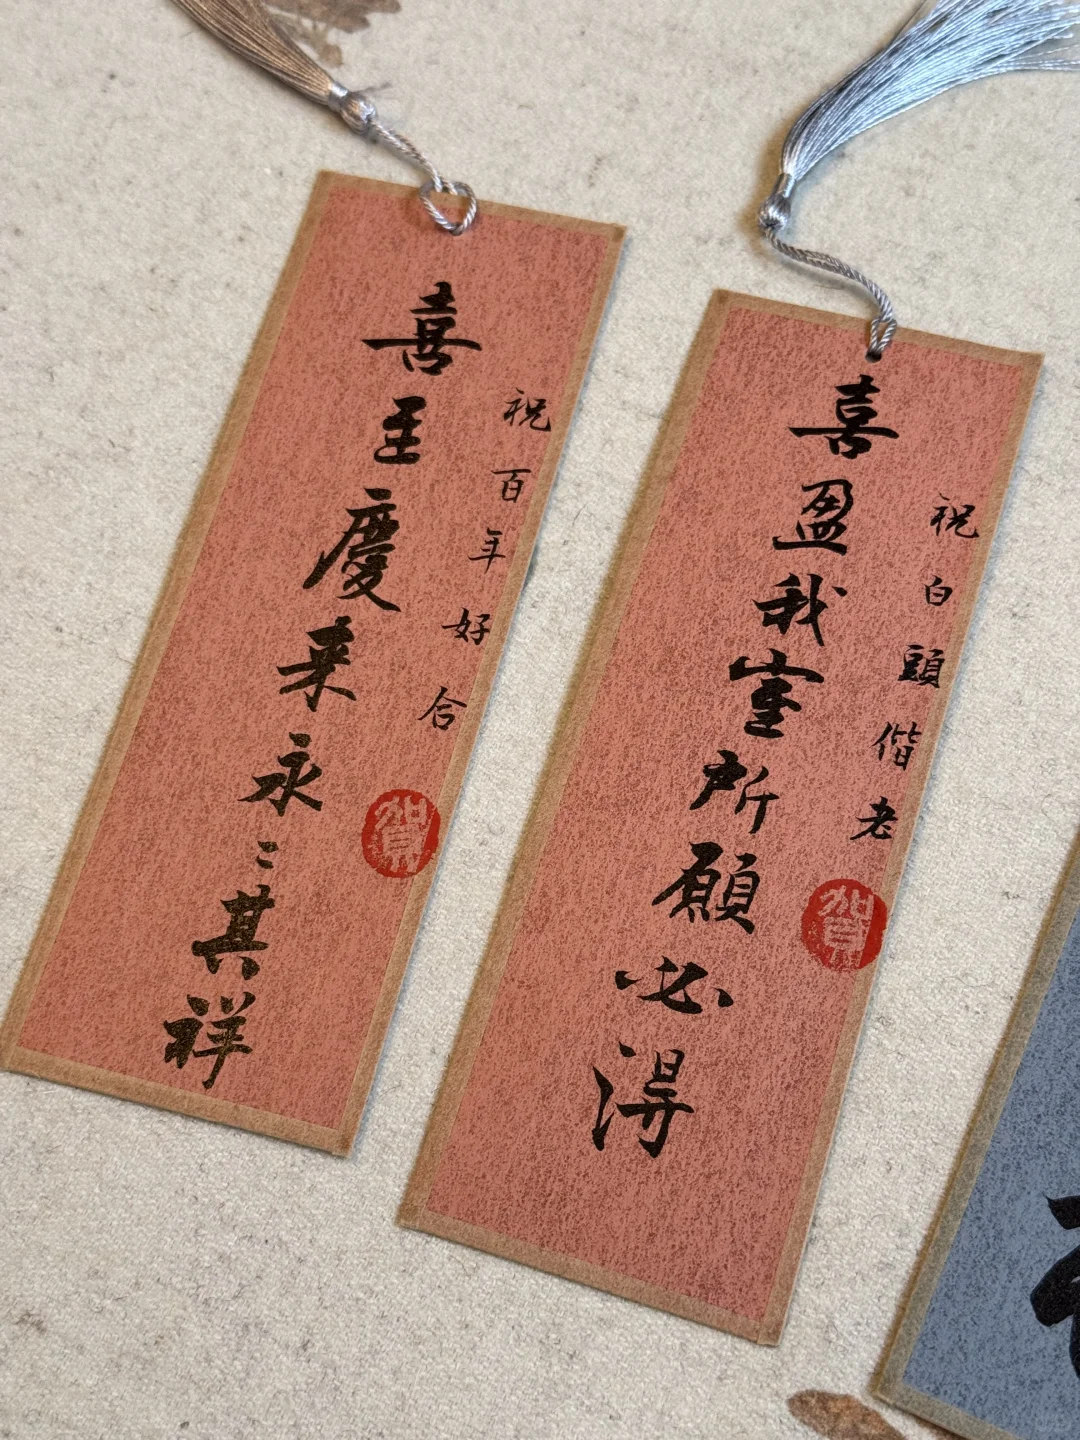 祝百年好合
喜至慶来永〻其祥
賀
祝白頭偕老
喜盈我室所願必得
賀